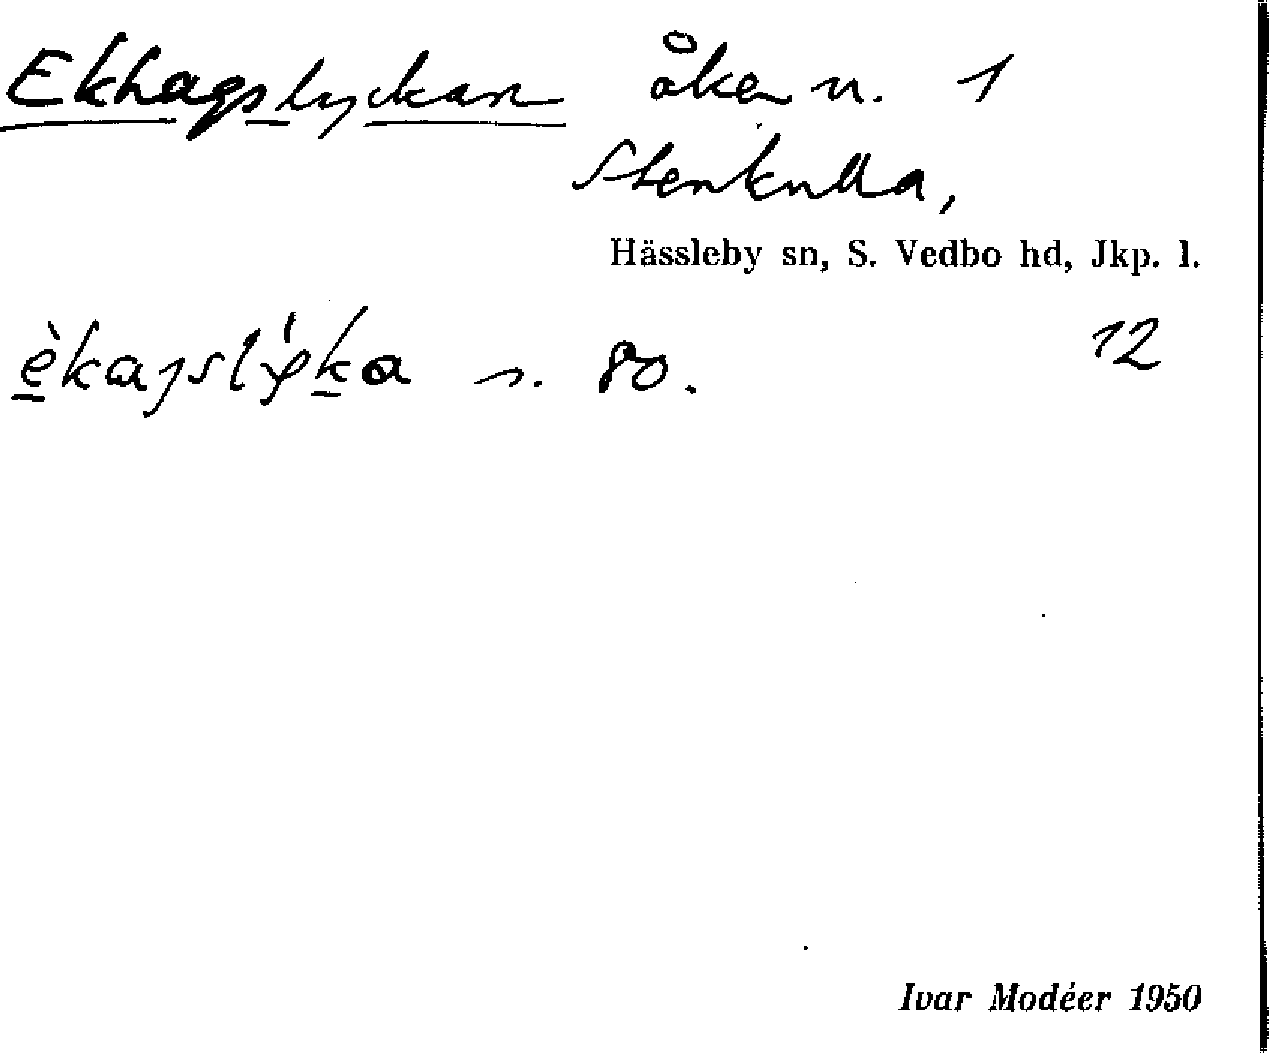 Ekhagslyckan åker n. 1
Stenkulla,
Hässleby sn, S. Vedbo hd, Jkp. l.
12
s. 80.
Ivar Modéer 1950